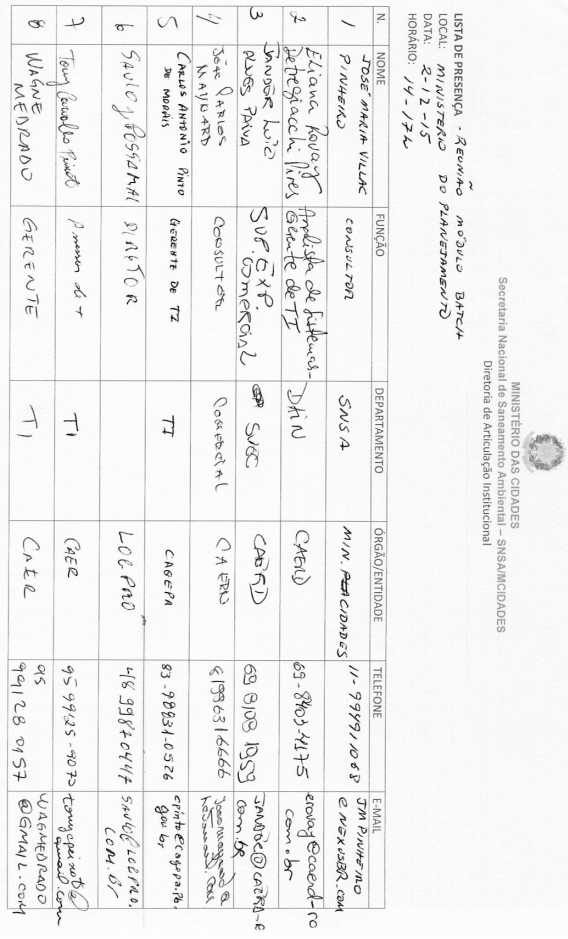 MINISTÉRIO DAS CIDADES
Secretaria Nacional de Saneamento Ambiental – SNSA/MCIDADES
Diretoria de Articulação Institucional
LISTA DE PRESENÇA - REUNIÃO MÓDULO BATCH
LOCAL: MINISTERIO DO PLANEJAMENTO
DATA: 2-12-15
HORÁRIO: 14-17h
N. NOME FUNÇÃO DEPARTAMENTO ÓRGÃO/ENTIDADE TELEFONE E-MAIL
1 JOSÉ MARIA VILLAC PINHEIRO CONSULTOR SNSA MIN. CIDADES 11-999911068 JMPINHEIRO@NEXUSBR.COM
2 Eliana Rovay Pires Analista de Sistemas - Gerente de TI CAERD erovay@caerd-ro.com.br
3 JANDER LUIZ ALVES PAIVA SUP. EXP. COMERCIAL CAERD
4 JOÃO CARLOS MAYNARD CONSULTOR COMERCIAL CAERN
5 CARLOS ANTONIO PINTO DE MORAIS GERENTE DE TI TI CAGEPA 83-98831-0526 cpinto@cagepa.pb.gov.br
6 SAULO POSSAMAI DIRETOR LOGPRO 48 99870447 SAULO@LOGPRO.COM.BR
7 Tony TI CAER
8 WAGNE MEDRADO GERENTE TI CAER 95 99128 0157 WAGMEDRADO@GMAIL.COM